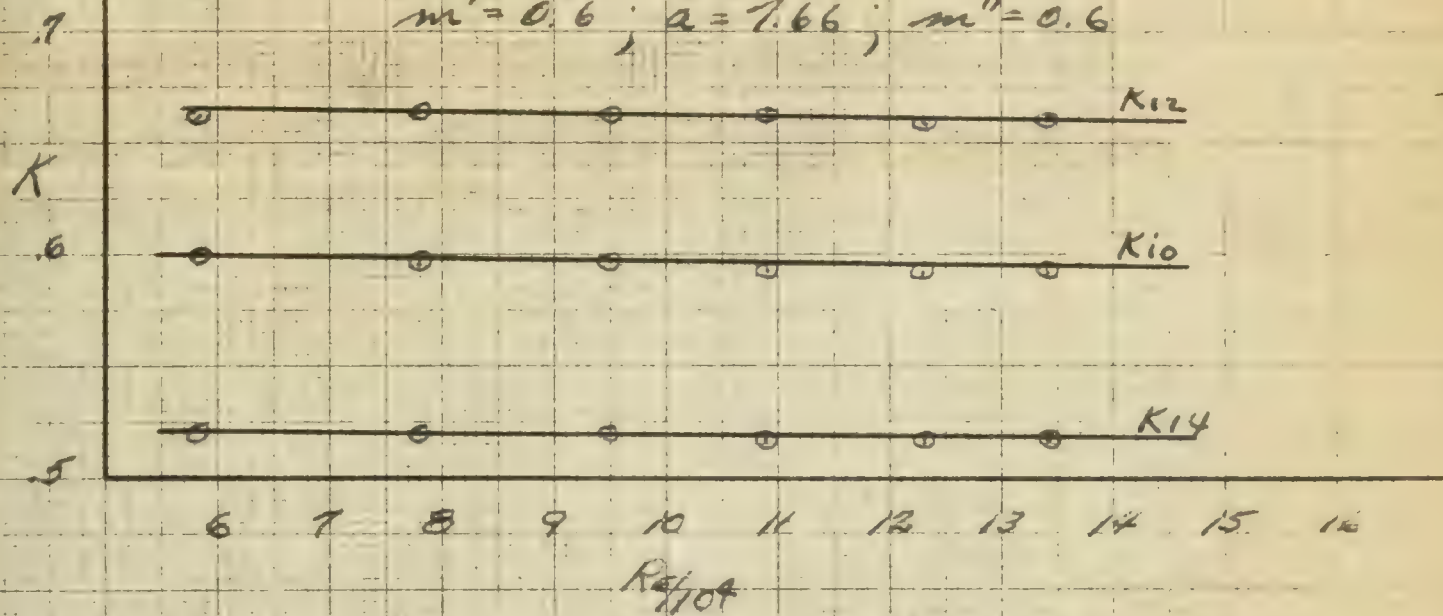 m' = 0.6 ; a = 7.66 ; m" = 0.6
.7
K12
K
.6
K10
K14
.5
6 7 8 9 10 11 12 13 14 15 16
Re/10⁴